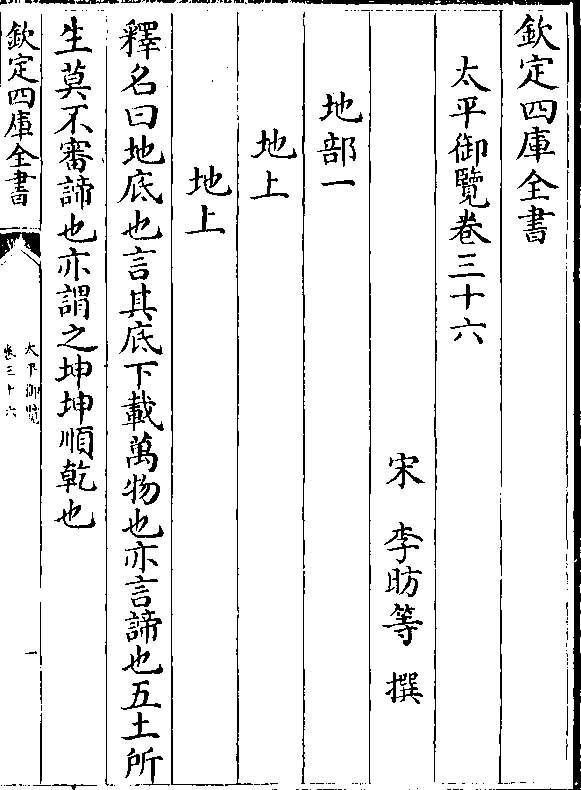 欽定四庫全書
太平御覽卷三十六
宋 李昉等 撰
地部一
地上
地上
釋名曰地底也言其底下載萬物也亦言諦也五土所
生莫不審諦也亦謂之坤坤順乾也
欽定四庫全書
太平御覽
卷三十六
一